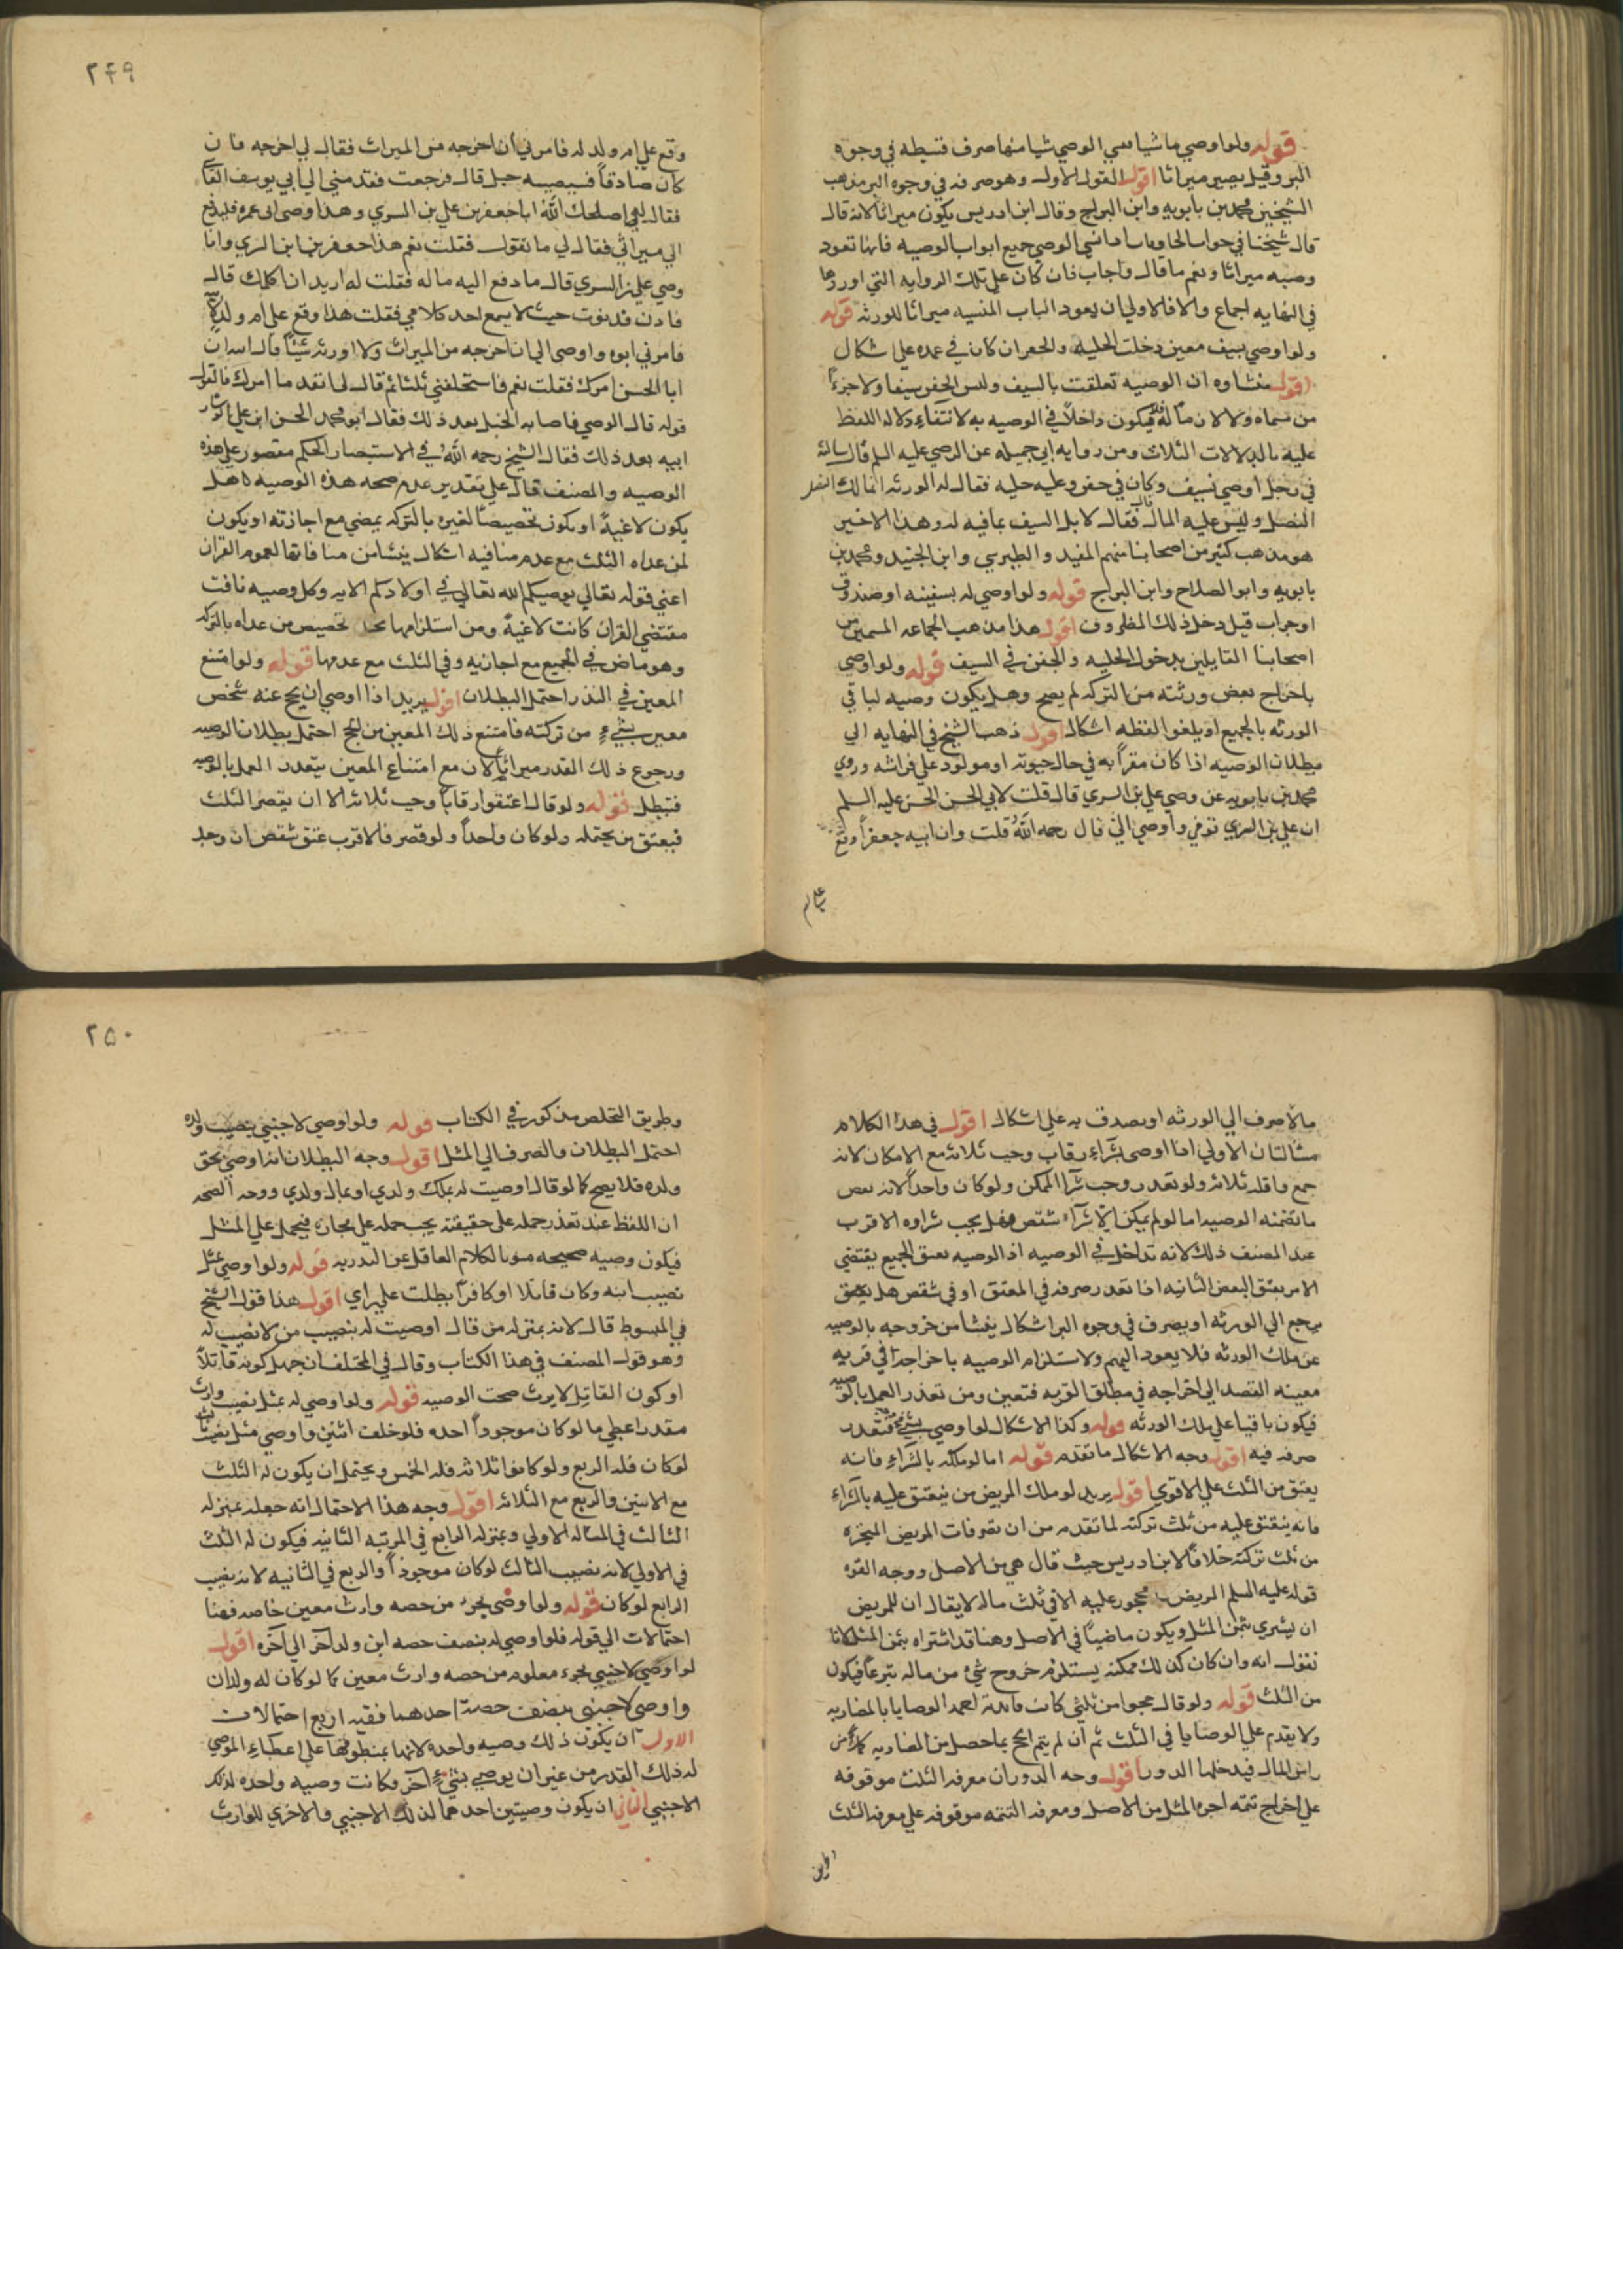 قوله ولو اوصي باشيا نسي الوصي شيا منها صرف قسطه في وجوه
البر وقيل يصير ميراثا اقول القول الاول وهو صرفه في وجوه البر مذهب
الشيخين محمد بن بابويه وابن البراج وقال ابن ادريس يكون ميراثا لانه قال
قال شيخنا في جواب الحاويات اذا نسي الوصي جميع ابواب الوصيه فانها تعود
وصيه ميراثا ونعم ما قال واجاب فان كان علي تلك الروايه التي اوردها
في النهايه اجماع والا فالاولي ان يعود الباب المنسيه ميراثا للورثه قوله
ولو اوصي بسيف معين دخلت الحليه والجفن ان كان في غمده علي اشكال
اقول منشاوه ان الوصيه تعلقت بالسيف وليس الجفن سيفا ولا جزءا
من مسماه ولا لازما له فيكون داخلا في الوصيه به لانتفاء دلاله اللفظ
عليه بالدلالات الثلاث ومن روايه ابي جميله عن الرضي عليه السلم قال سالته
في رجل اوصي بسيف وكان في جفن وعليه حليه فقال له الورثه انما لك النصل
النصل وليس عليه المال قال فقال لا بل السيف بما فيه له وهذا الاخير
هو مذهب كثير من اصحابنا منهم المفيد والطبرسي وابن الجنيد ومحمد بن
بابويه وابو الصلاح وابن البراج قوله ولو اوصي له بسفينه او صندوق
او جراب قيل دخل ذلك المظروف اقول هذا مذهب الجماعه المسمين من
اصحابنا القايلين بدخول الحليه والجفن في السيف قوله ولو اوصي
باخراج بعض ورثته من التركه لم يصح وهل يكون وصيه لباقي
الورثه بالجميع او يلغو اللفظ اشكال اقول ذهب الشيخ في النهايه الي
بطلان الوصيه اذا كان مقرا به في حال حيوته او مولود علي فراشه وروي
محمد بن بابويه عن وصي علي بن السري قال قلت لابي الحسن عليه السلم
ان علي بن السري توفي واوصي الي قال رحمه الله قلت وان ابيه جعفرا وقع
علي ام
٢٤٩
وقع علي ام ولد له فامرني ان اخرجه من الميراث فقال لي اخرجه فان
كان صادقا فسيصيبه خبل قال فرجعت فقدمني الي ابي يوسف القاضي
فقال له اصلحك الله انا جعفر بن علي بن السري وهذا وصي ابي فمره فليدفع
الي ميراثي فقال لي ما تقول فقلت نعم هذا جعفر بن علي بن السري وانا
وصي علي بن السري قال فادفع اليه ماله فقلت له اريد ان اكلمك قال
فادن فدنوت حيث لا يسمع احد كلامي فقلت هذا وقع علي ام ولد لابيه
فامرني ابوه واوصي الي ان اخرجه من الميراث ولا اورثه شيئا قال الله ان
ابا الحسن امرك فقلت نعم فاستحلفني ثلثا ثم قال لي انفذ ما امرك فالقول
قوله قال الوصي فاصابه الخبل بعد ذلك فقال ابو محمد الحسن ابن علي الوشا
ابيه بعد ذلك فقال الشيخ رحمه الله في الاستبصار الحكم مقصور علي هذه
الوصيه والمصنف قال علي تقدير عدم صحه هذه الوصيه هل
يكون لاغيه او يكون تخصيصا لغيره بالتركه يمضي مع اجازته او يكون
لمن عداه الثلث مع عدم منافيه اشكال ينشا من منافاتها لعموم القران
اعني قوله تعالي يوصيكم الله تعالي في اولادكم الايه وكل وصيه نافت
مقتضي القران كانت لاغيه ومن استلزامها تخصيص من عداه بالتركه
وهو ماض في الجميع مع اجازته وفي الثلث مع عدمها قوله ولو امتنع
المعين في النذر احتمل البطلان اقول يريد اذا اوصي ان يحج عنه شخص
معين بشيء من تركته فامتنع ذلك المعين من الحج احتمل بطلان الوصيه
ورجوع ذلك القدر ميراثا لان مع امتناع المعين يتعذر العمل بالوصيه
فتبطل قوله ولو قال اعتقوا رقابا وجب ثلاثه الا ان يقصر الثلث
فيعتق من يحتمله ولو كان واحدا ولو قصر فالاقرب عتق شقص ان وجد
والا صرف الي الورثه او يصدق به علي اشكال اقول في هذا الكلام
مسالتان الاولي اذا اوصي بشراء رقاب وجب ثلاثه مع الامكان لانه
جمع واقله ثلاثه ولو تعذر وجب شرآ الممكن ولو كان واحدا لانه بعض
ما تضمنه الوصيه اما لو لم يمكن الا شرآء شقص فهل يجب شراوه الاقرب
عند المصنف ذلك لانه تداخل في الوصيه اذ الوصيه بعتق الجميع يقتضي
الامر بعتق البعض الثانيه اذا تعذر صرفه في المعتق او في شقص هل يعتق
يرجع الي الورثه او يصرف في وجوه البر اشكال ينشا من خروجه بالوصيه
عن ملك الورثه فلا يعود اليهم ولاستلزام الوصيه باخراجه في قربه
معينه القصد الي اخراجه في مطلق القربه فتعين ومن تعذر العمل بالوصيه
فيكون باقيا علي ملك الورثه قوله وكذا الاشكال لو اوصي بشيء فتعذر
صرفه فيه اقول وجه الاشكال ما تقدم قوله اما لو ملكه بالشراء فانه
يعتق من الثلث علي الاقوي اقول يريد لو ملك المريض من ينعتق عليه بالشراء
فانه ينعتق عليه من ثلث تركته لما تقدم من ان تصرفات المريض المنجزه
من ثلث تركته خلافا لابن ادريس حيث قال هي من الاصل ووجه القوه
قوله عليه السلم المريض محجور عليه الا في ثلث ماله لا يقال ان للمريض
ان يشتري بثمن المثل ويكون ماضيا في الاصل وهنا قد اشتراه بثمن المثل لانا
نقول انه وان كان كذلك لكنه يستلزم خروج شيء من ماله تبرعا فيكون
من الثلث قوله ولو قال حجوا من ثلثي كانت فائدته احد الوصايا بالمضاربه
ولا يقدم علي الوصايا في الثلث ثم ان لم يتم الحج بما حصل من المضاربه كمل من
راس المال فيدخلها الدور اقول وجه الدور ان معرفه الثلث موقوفه
علي اخراج تتمه اجره المثل من الاصل ومعرفه التتمه موقوفه علي معرفه الثلث
وطريق
٢٥٠
وطريق التخلص مذكور في الكتاب قوله ولو اوصي لاجنبي بنصيب ولده
احتمل البطلان والصرف الي المثل اقول وجه البطلان انه اوصي بحق
ولده فلا يصح كما لو قال اوصيت له بملك ولدي او بمال ولدي ووجه الصحه
ان اللفظ عند تعذر حمله علي حقيقته يجب حمله علي مجازه فيحمل علي المثل
فيكون وصيه صحيحه صونا لكلام العاقل عن الهدريه قوله ولو اوصي بمثل
نصيب ابنه وكان قاتلا او كافرا بطلت علي راي اقول هذا قول الشيخ
في المبسوط قال لانه بمنزله من قال اوصيت له بنصيب من لا نصيب له
وهو قول المصنف في هذا الكتاب وقال في المختلف ان جهل كونه قاتلا
او كون القاتل لا يرث صحت الوصيه قوله ولو اوصي له بمثل نصيب وارث
مقدر اعطي ما لو كان موجودا اخذه فلو خلف اثنين واوصي مثل نصيب ثالث
لو كان فله الربع ولو كانوا ثلاثه فله الخمس ويحتمل ان يكون له الثلث
مع الاثنين والربع مع الثلاثه اقول وجه هذا الاحتمال انه جعله بمنزله
الثالث في المساله الاولي وبمنزله الرابع في المرتبه الثانيه فيكون له الثلث
في الاولي لانه نصيب الثالث لو كان موجودا والربع في الثانيه لانه نصيب
الرابع لو كان قوله ولو اوصي بجزء من حصه وارث معين خاصه فهنا
احتمالات الي قوله فلو اوصي له بنصف حصه ابن وله آخر الي آخره اقول
لو اوصي لاجنبي بجزء معلوم من حصه وارث معين كما لو كان له ولدان
واوصي لاجنبي بنصف حصة احدهما ففيه اربع احتمالات
الاول ان يكون ذلك وصيه واحده لانها بمنطوقها علي اعطاء الموصي
له ذلك القدر من غير ان يوصي بشيء آخر فكانت وصيه واحده لذلك
الاجنبي الثاني ان يكون وصيتين احدهما لذلك الاجنبي والاخري للوارث